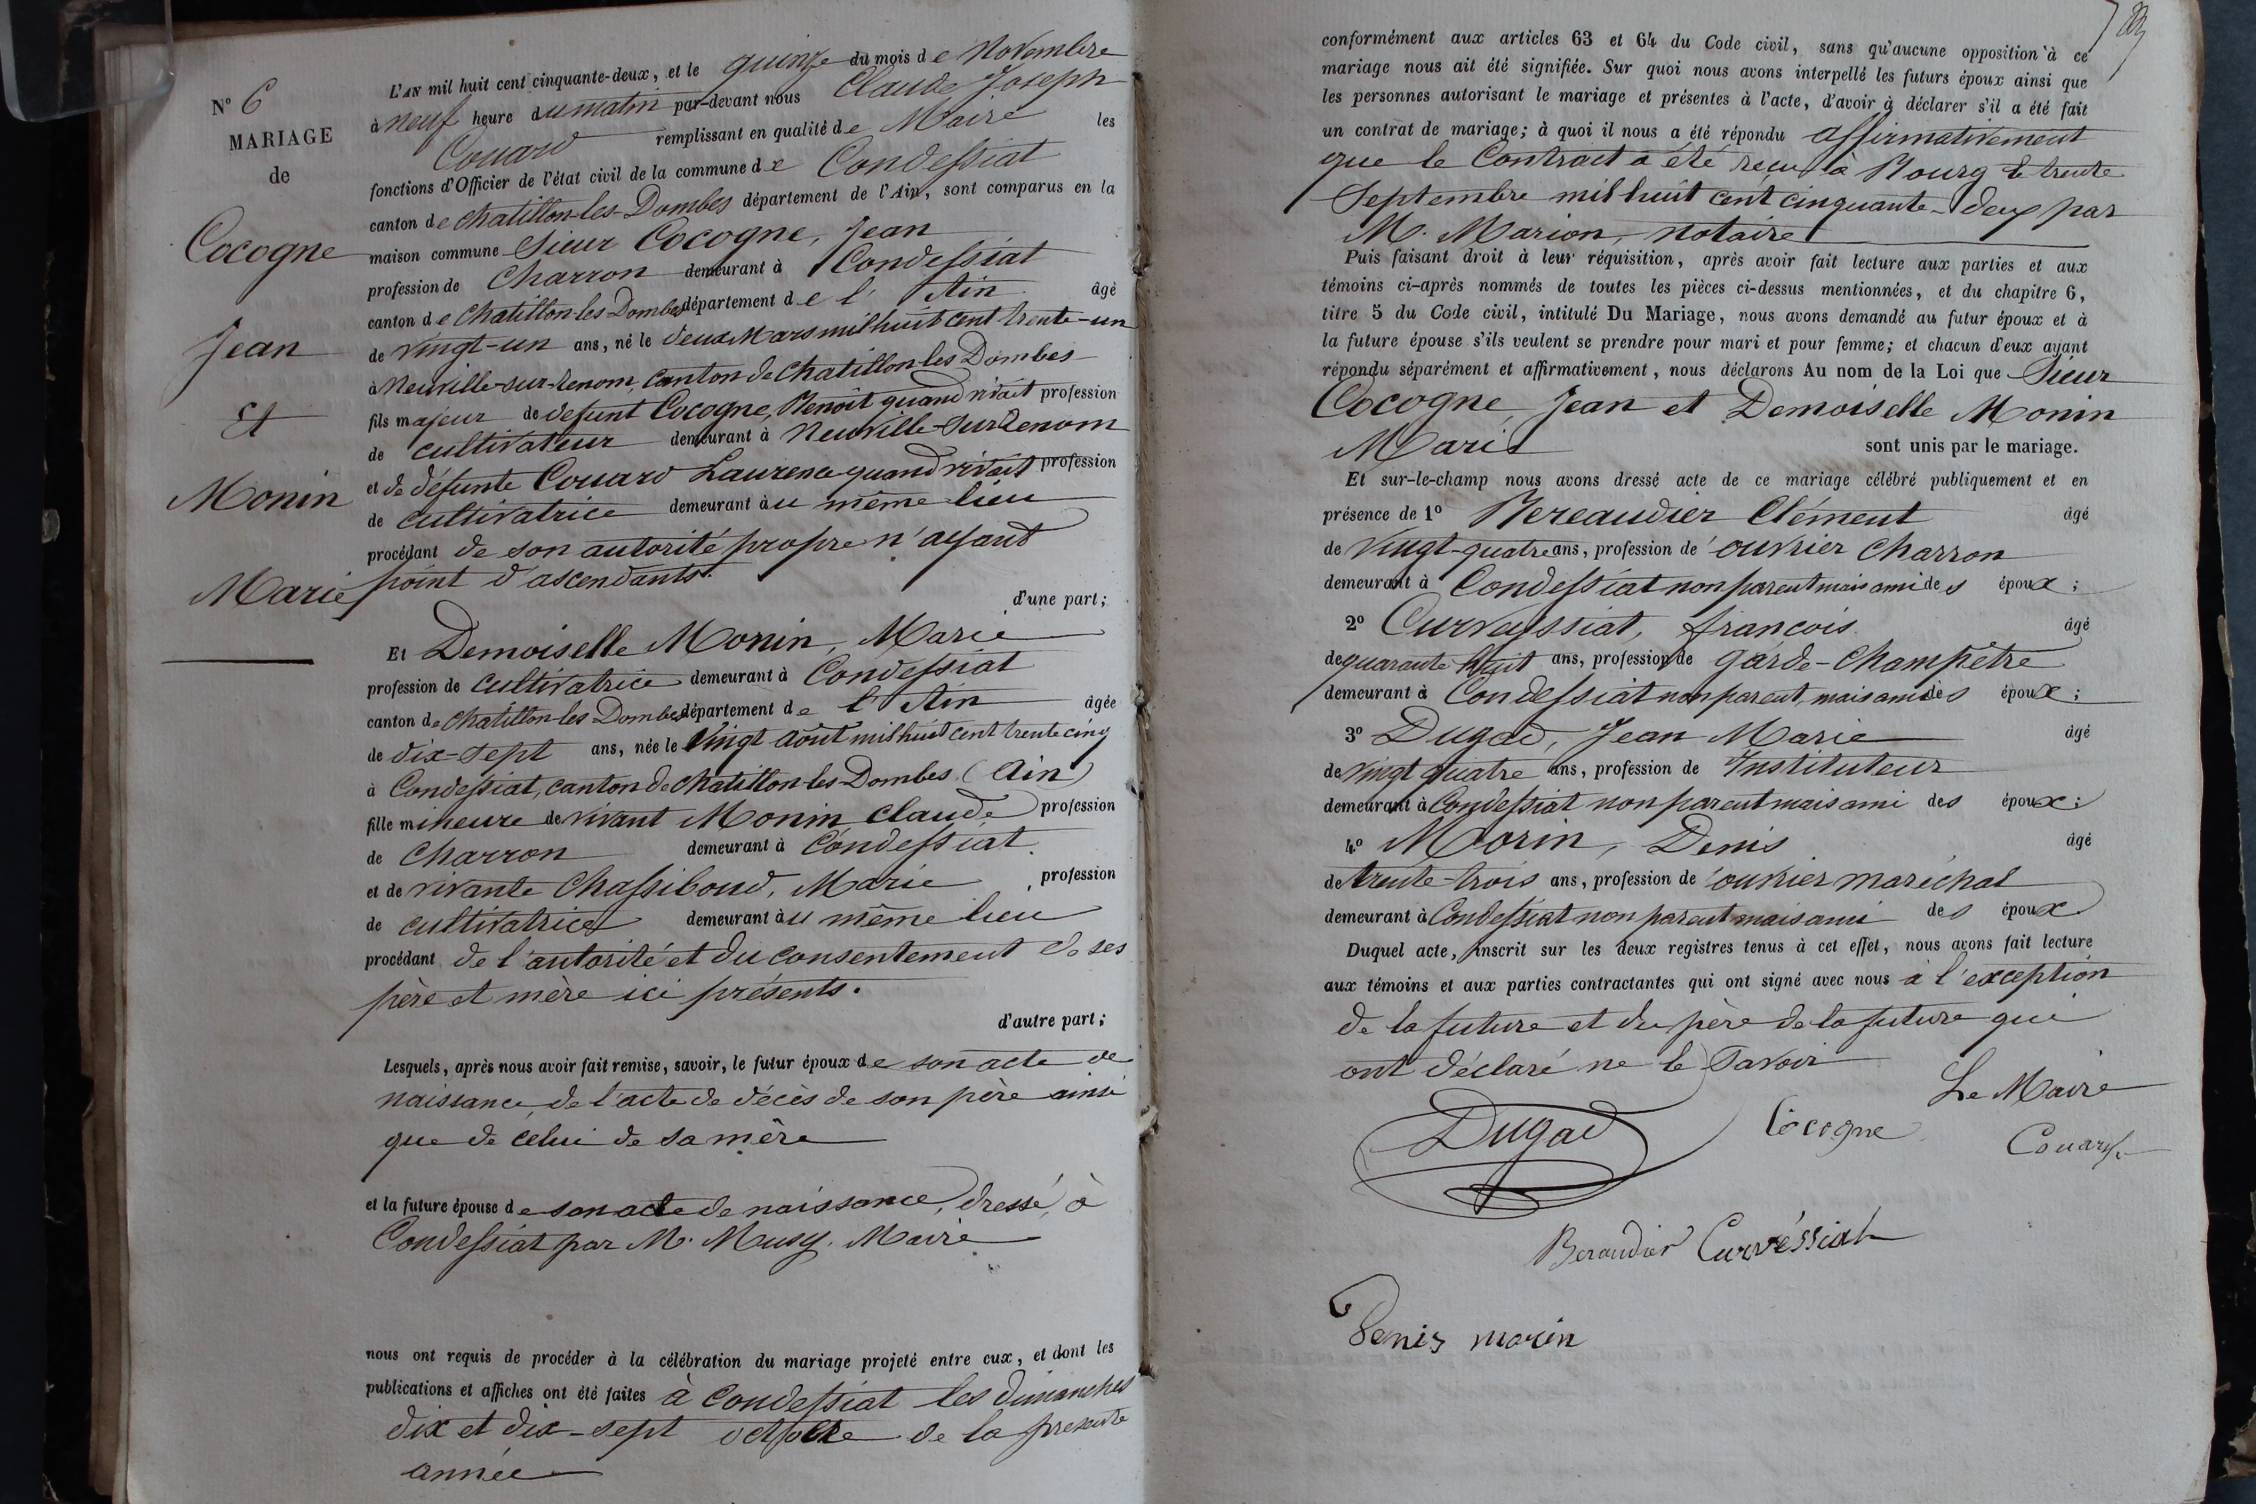 N° 6
MARIAGE
de
Cocogne
Jean
Et
Monin
Marie
L'AN mil huit cent cinquante-deux, et le quinze du mois de Novembre
à neuf heure du matin par-devant nous Claude Joseph
Couard remplissant en qualité de Maire les
fonctions d'Officier de l'état civil de la commune de Condessiat
canton de Chatillon-les-Dombes département de l'Ain, sont comparus en la
maison commune Sieur Cocogne, Jean
profession de Charron demeurant à Condessiat
canton de Chatillon-les-Dombes département de l'Ain âgé
de vingt-un ans, né le deux Mars mil huit cent trente-un
à Neuville-sur-Renom, canton de Chatillon-les Dombes
fils majeur de defunt Cocogne, Benoît quand vivait profession
de cultivateur demeurant à Neuville-sur Renom
et de défunte Couard Laurence quand vivait profession
de cultivatrice demeurant au même lieu
procédant de son autorité propre n'ayant
point d'ascendants.
d'une part;
Et Demoiselle Monin, Marie
profession de cultivatrice demeurant à Condessiat
canton de Chatillon-les Dombes département de l'Ain âgée
de dix-sept ans, née le vingt août mil huit cent trente cinq
à Condessiat, canton de Chatillon-les-Dombes (Ain)
fille mineure de vivant Monin Claude profession
de Charron demeurant à Condessiat.
et de vivante Chassiboud, Marie profession
de cultivatrice demeurant au même lieu
procédant de l'autorité et du consentement de ses
père et mère ici présents.
d'autre part;
Lesquels, après nous avoir fait remise, savoir, le futur époux de son acte de
naissance, de l'acte de décès de son père ainsi
que de celui de sa mère
et la future épouse de son acte de naissance, dressé, à
Condessiat par M. Musy. Maire
nous ont requis de procéder à la célébration du mariage projeté entre eux, et dont les
publications et affiches ont été faites à Condessiat les dimanches
dix et dix-sept octobre de la presente
année
conformément aux articles 63 et 64 du Code civil, sans qu'aucune opposition à ce
mariage nous ait été signifiée. Sur quoi nous avons interpellé les futurs époux ainsi que
les personnes autorisant le mariage et présentes à l'acte, d'avoir à déclarer s'il a été fait
un contrat de mariage; à quoi il nous a été répondu affirmativement
que le Contract a été reçu à Bourg le trente
Septembre mil huit cent cinquante-deux par
M. Marion, notaire
Puis faisant droit à leur réquisition, après avoir fait lecture aux parties et aux
témoins ci-après nommés de toutes les pièces ci-dessus mentionnées, et du chapitre 6,
titre 5 du Code civil, intitulé Du Mariage, nous avons demandé au futur époux et à
la future épouse s'ils veulent se prendre pour mari et pour femme; et chacun d'eux ayant
répondu séparément et affirmativement, nous déclarons Au nom de la Loi que Sieur
Cocogne, Jean et Demoiselle Monin
Marie sont unis par le mariage.
Et sur-le-champ nous avons dressé acte de ce mariage célébré publiquement et en
présence de 1° Bereaudier Clément âgé
de vingt-quatre ans, profession de ouvrier Charron
demeurant à Condessiat non parent mais ami des époux;
2° Curvessiat, françois âgé
de quarante huit ans, profession de garde-Champêtre
demeurant à Condessiat non parent, mais ami des époux;
3° Dugad, Jean Marie âgé
de vingt quatre ans, profession de Instituteur
demeurant à Condessiat non parent mais ami des époux;
4° Morin, Denis âgé
de trente-trois ans, profession de ouvrier maréchal
demeurant à Condessiat non parent mais ami des époux
Duquel acte, inscrit sur les deux registres tenus à cet effet, nous avons fait lecture
aux témoins et aux parties contractantes qui ont signé avec nous à l'exception
de la future et du père de la future qui
ont déclaré ne le savoir
Le Maire
Dugad Cocogne Couard
Beraudier Curvéssiat
Denis morin